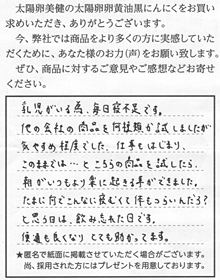 太陽卵美健の太陽卵卵黄油黒にんにくをお買い
求めいただき、ありがとうございます。
今、弊社では商品をより多くの方に実感していた
だくために、あなた様のお力(声)をお願い致します。
ぜひ、商品に対するご意見やご感想などお寄せ
ください。
乳児がいる為、毎日寝不足です。
他の会社の商品を何種類か試しましたが
気やすめ程度でした。仕事もはじまり、
このままでは…とこちらの商品を試したら、
朝がいつもより楽に起きる事ができました。
たまに何でこんなに疲れてて体もつらいんだろ?
と思う日は、飲み忘れた日です。
便通も良くなりとても助かってます。
★匿名で紙面に掲載させていただく場合がございます。
尚、採用された方にはプレゼントを用意しております。